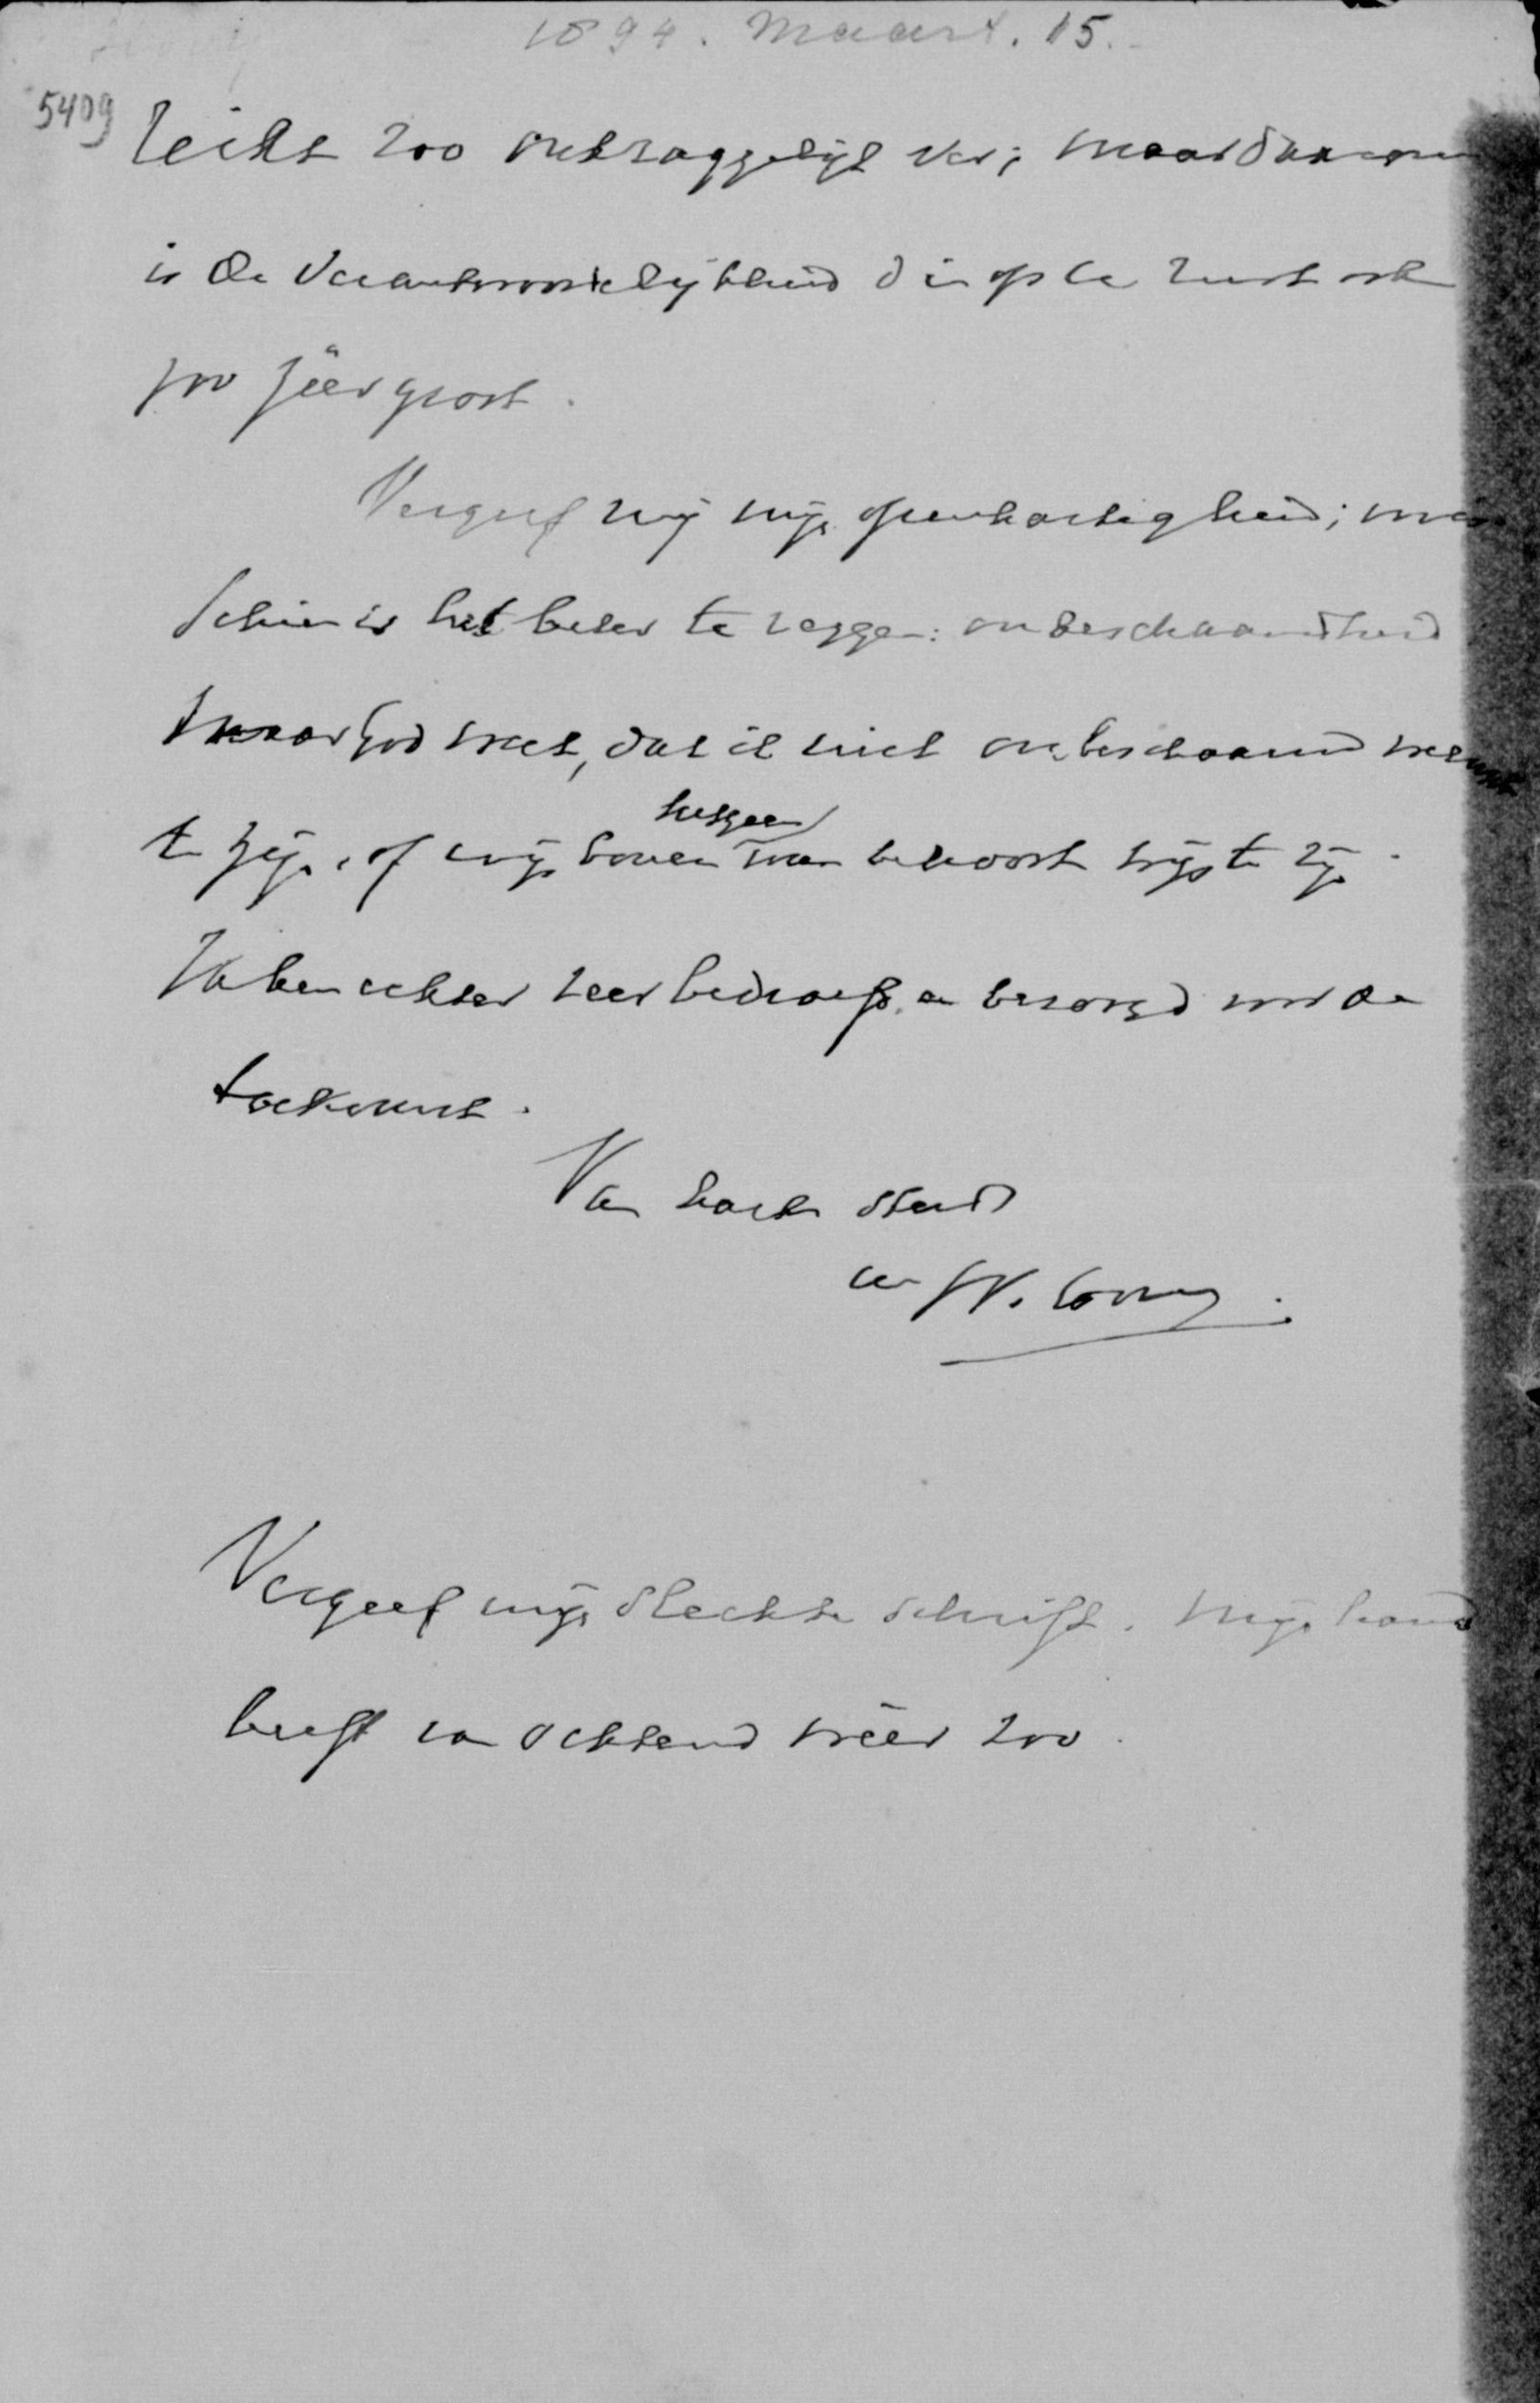 1894. Maart. 15.
5409
leicht zoo ontzaggelijk ver; maar daarom
is de verantwoordelijkheid die op U rust ook
zoo zéér groot.
Vergeef mij mijn openhartigheid; mis
schien is het beter te zeggen: onbeschaamdheid
maar God weet, dat ik niet onbeschaamd wensch
te zijn, of wijs boven hetgeen men behoort wijs te zijn.
Ik ben echter zeer bedroefd en bezorgd voor de
toekomst.
Van harte steeds
uw W.
Vergeef mijn slechte schrift. Mijn hand
beeft van ochtend wéér zoo.